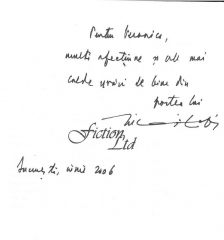 Pentru Veronica,
multă afecțiune și cele mai
calde urări de bine din
partea lui
Fiction
Ltd
București, iunie 2006